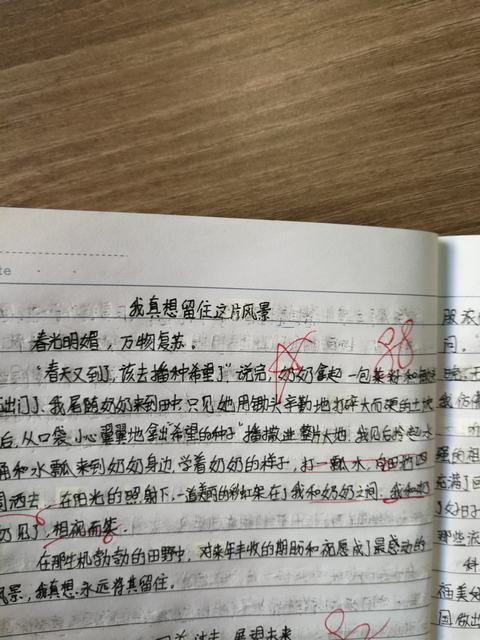 te
我真想留住这片风景
春光明媚，万物复苏。
88
"春天又到了，该去播种希望了"说完，奶奶拿起一包菜籽和
出门了。我尾随奶奶来到田中，只见她用锄头辛勤地打碎大而硬的土块
后，从口袋小心翼翼地拿出"希望的种子"播撒进整片大地，我见后拎起水
桶和水瓢来到奶奶身边，学着奶奶的样子，打一瓢水，向田洒四
周洒去。在阳光的照射下，一道美丽的彩虹架在了我和奶奶之间，我和奶
奶见了，相视而笑。
在那生机勃勃的田野中，对来年丰收的期盼和祝愿成了最感动的
风景，我真想永远将其留住。
展望未来
服
问。
强的祖
充满了
了好日子
那些
科
福美好
国做出